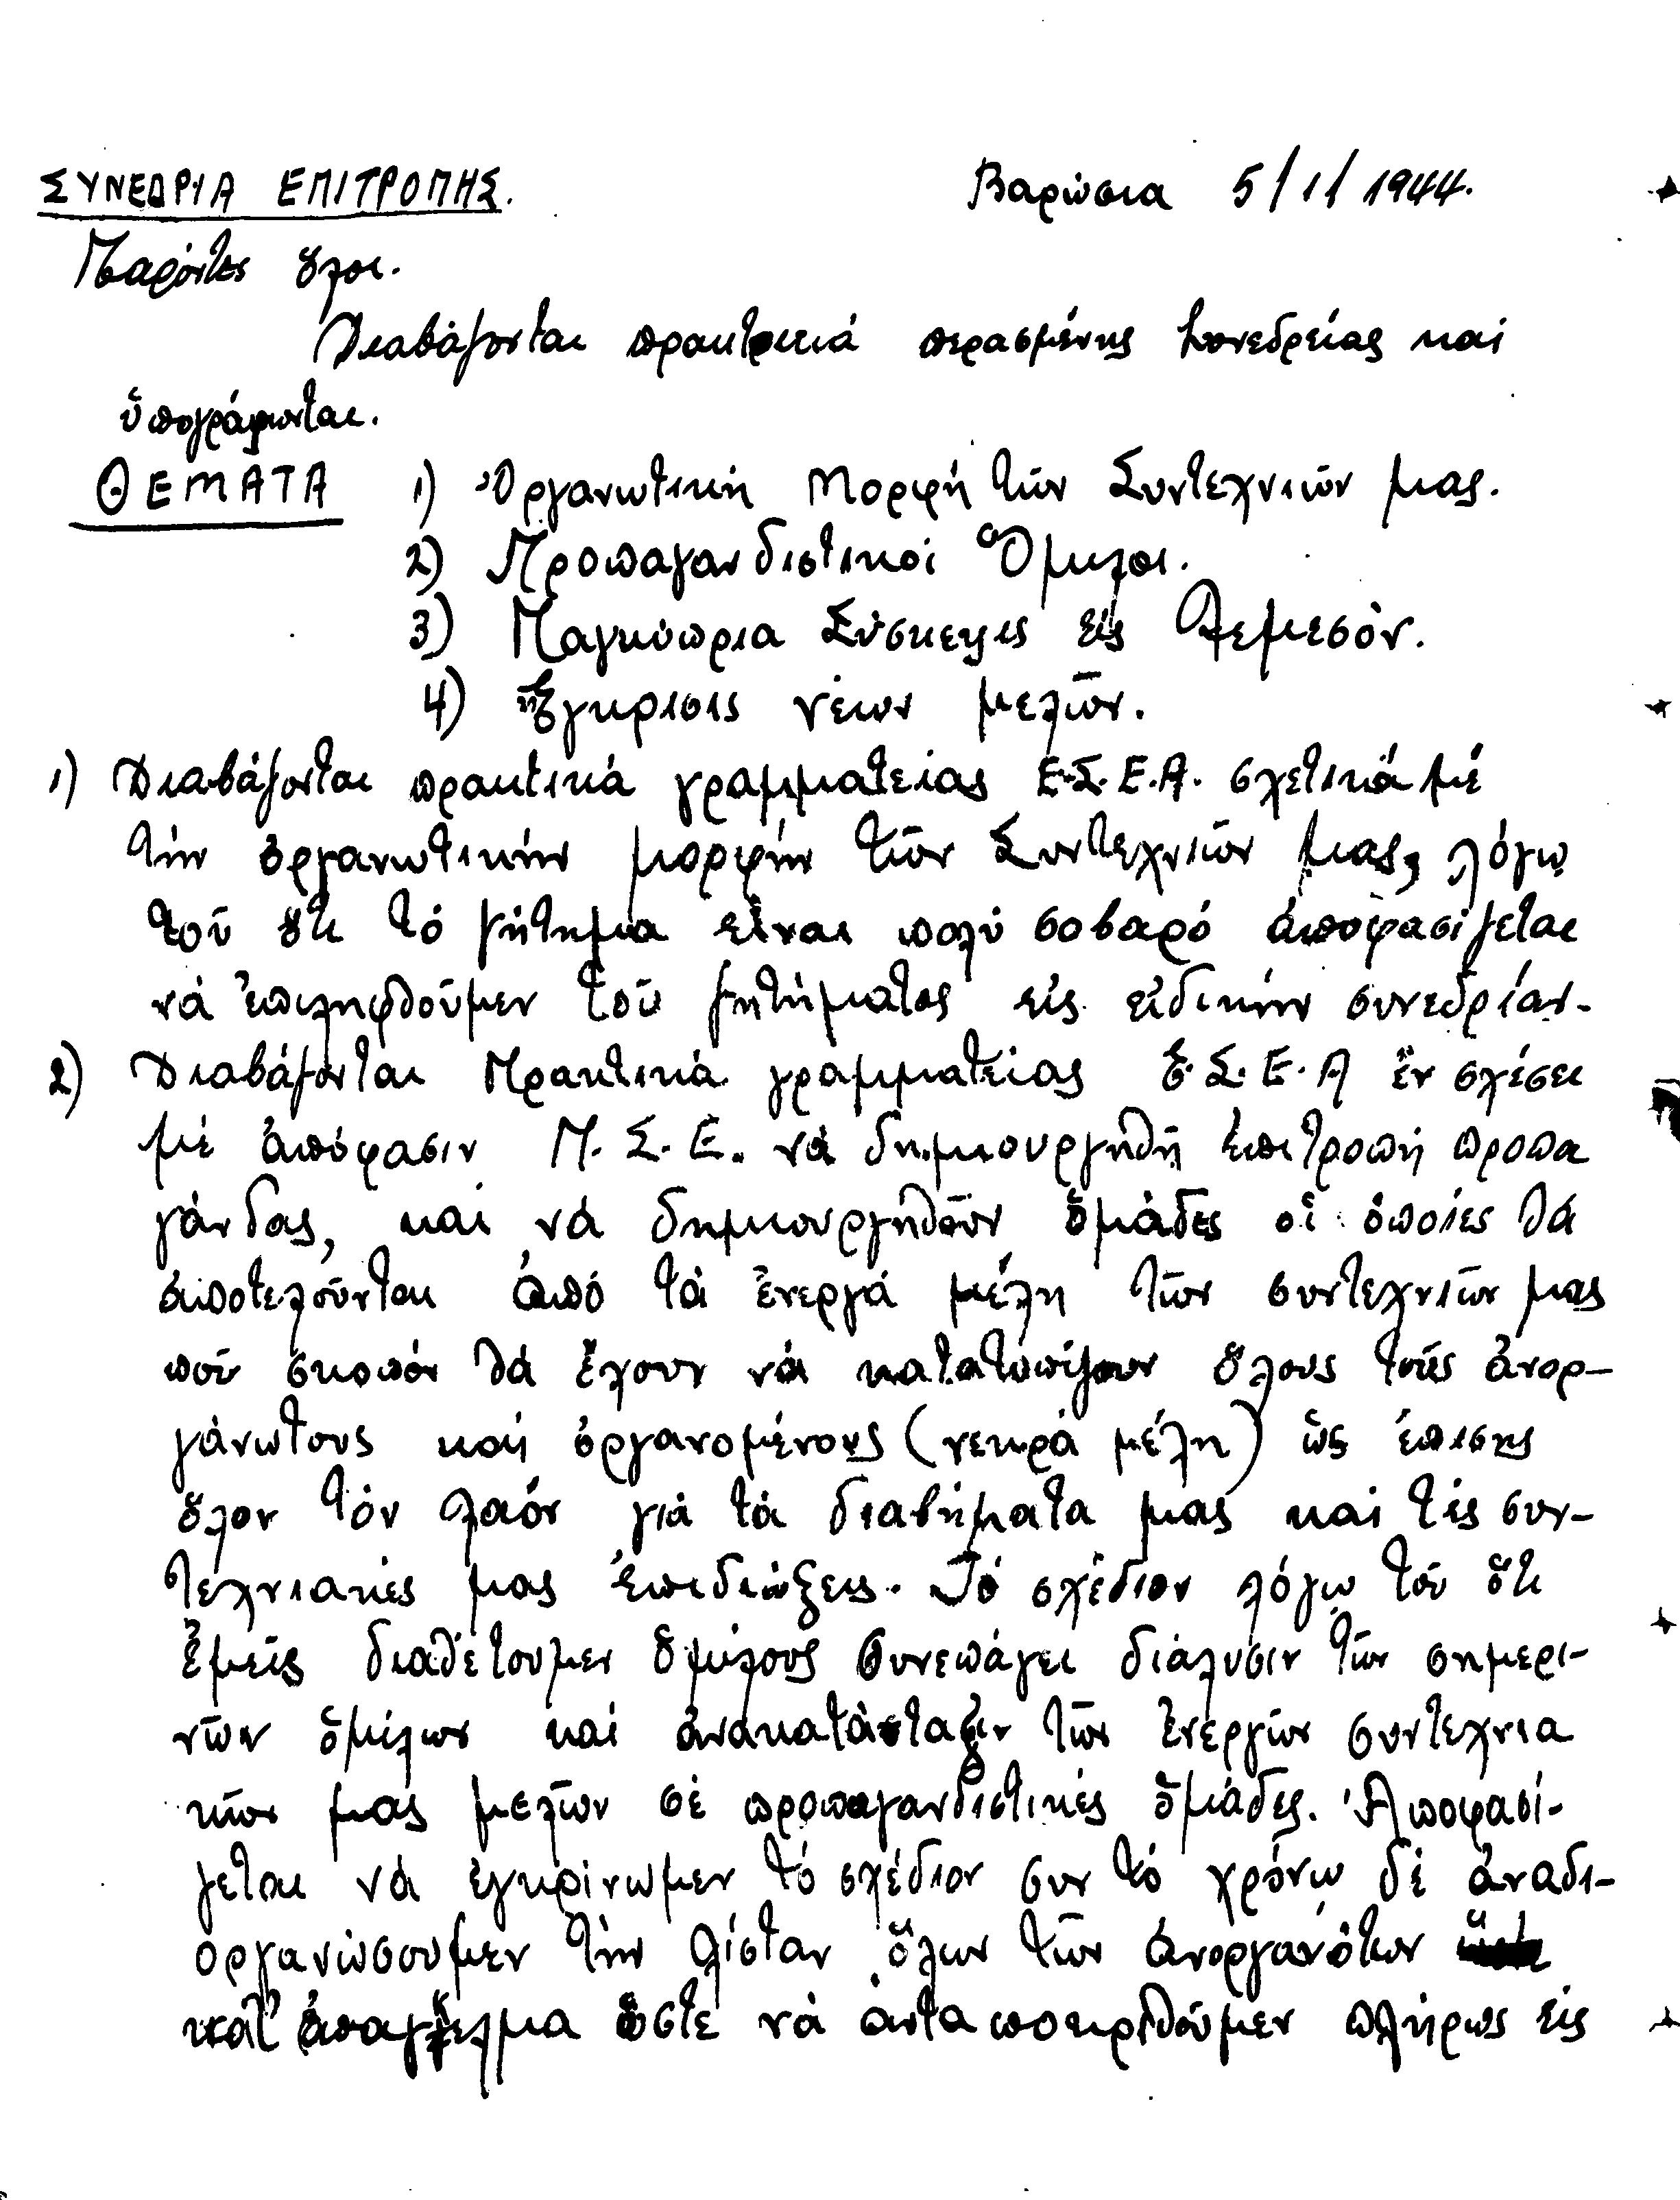 ΣΥΝΕΔΡΙΑ ΕΠΙΤΡΟΠΗΣ. Βαρώσια 5/11/1944.
Παρόντες ὅλοι.
Διαβάζονται πρακτικά περασμένης συνεδρείας καί
ὑπογράφωνται.
ΘΕΜΑΤΑ 1) Ὀργανωτική Μορφή τῶν Συντεχνιῶν μας.
2) Προπαγανδιστικοί Ὅμιλοι.
3) Παγκύπρια Σύσκεψις εἰς Λεμεσόν.
4) Ἔγκρισις νέων μελῶν.
1) Διαβάζονται πρακτικά γραμματείας Ε.Σ.Ε.Α. σχετικά μέ
τήν ὀργανωτικήν μορφήν τῶν Συντεχνιῶν μας, λόγῳ
τοῦ ὅτι τό ζήτημα εἶναι πολύ σοβαρό ἀποφασίζεται
νά ἐπιληφθοῦμεν τοῦ ζητήματος εἰς εἰδικήν συνεδρίαν.
2) Διαβάζονται Πρακτικά γραμματείας Ε.Σ.Ε.Α ἐν σχέσει
μέ ἀπόφασιν Π.Σ.Ε. νά δημιουργηθῆ ἐπιτροπή προπα
γάνδας, καί νά δημιουργηθοῦν ὁμάδες οἱ ὁποίες θά
ἀποτελοῦνται ἀπό τά ἐνεργά μέλη τῶν συντεχνιῶν μας
πού σκοπόν θά ἔχουν νά κατατοπίζουν ὅλους τούς ἀνορ-
γάνωτους καί ὀργανομένους (νεκρά μέλη) ὡς ἐπίσης
ὅλον τόν λαόν γιά τά διαβήματα μας καί τές συν-
τεχνιακές μας ἐπιδιώξεις. Τό σχέδιον λόγῳ τοῦ ὅτι
ἐμείς διαθέτουμεν ὁμίλους συνεπάγει διάλυσιν τῶν σημερι-
νῶν ὁμίλων καί ἀνακατάσταξιν τῶν ἐνεργῶν συντεχνια
κῶν μας μελῶν σέ προπαγανδιστικές ὁμάδες. Ἀποφασί-
ζεται νά ἐγκρίνωμεν τό σχέδιον συν τό χρόνῳ δέ ἀναδι-
οργανώσουμεν τήν λίσταν ὅλων τῶν ἀνοργανότων
κατ' ἀπαγγελμα ὥστε νά ἀνταποκριθοῦμεν πλήρως εἰς